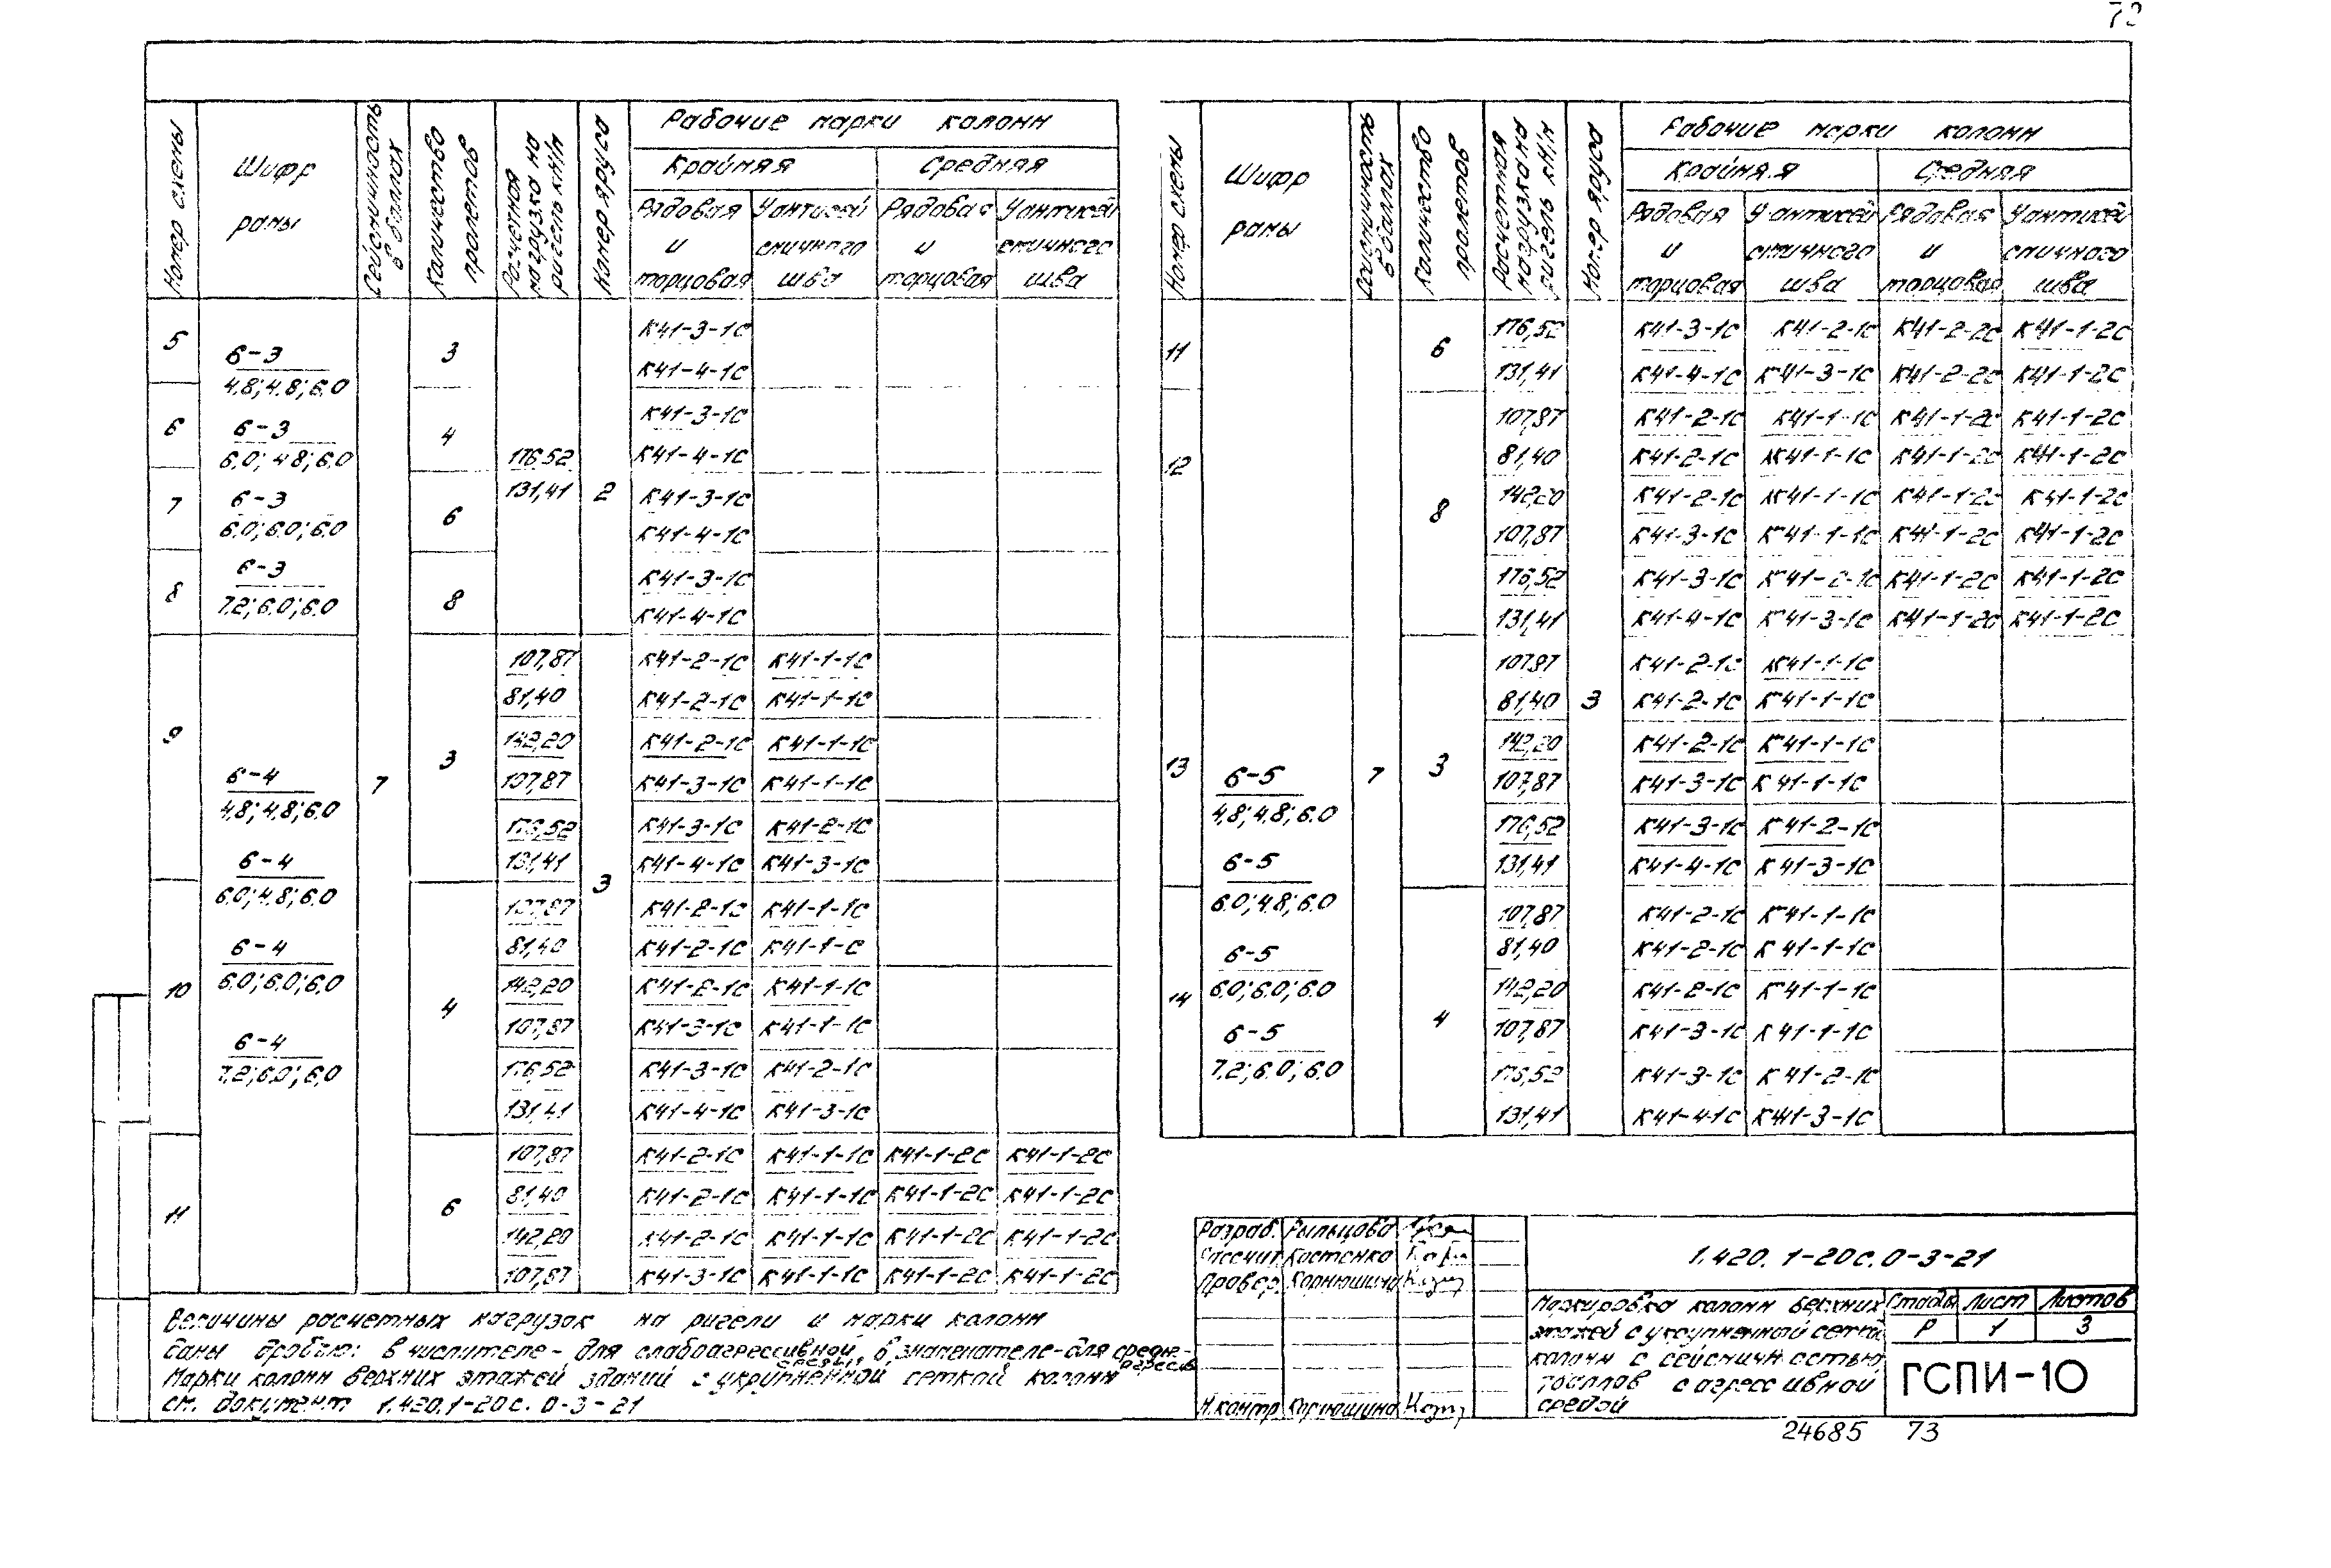 Номер схемы | Шифр рамы | Сейсмичность в баллах | Количество пролетов | Расчетная нагрузка на ригель кН/м | Номер яруса | Рабочие марки колонн
Крайняя | Средняя
Рядовая и торцовая | У антисейсмичного шва | Рядовая и торцовая | У антисейсмичного шва
5 | 6-3 / 4,8; 4,8; 6,0 | 3 | К41-3-1С
К41-4-1С
6 | 6-3 / 6,0; 4,8; 6,0 | 4 | К41-3-1С
176,52 | К41-4-1С
7 | 6-3 / 6,0; 6,0; 6,0 | 6 | 131,41 | 2 | К41-3-1С
К41-4-1С
8 | 6-3 / 7,2; 6,0; 6,0 | 8 | К41-3-1С
К41-4-1С
107,87 | К41-2-1С | К41-1-1С
81,40 | К41-2-1С | К41-1-1С
9 | 142,20 | К41-2-1С | К41-1-1С
6-4 / 4,8; 4,8; 6,0 | 7 | 3 | 107,87 | К41-3-1С | К41-1-1С
176,52 | К41-3-1С | К41-2-1С
6-4 / 6,0; 4,8; 6,0 | 131,41 | 3 | К41-4-1С | К41-3-1С
107,87 | К41-2-1С | К41-1-1С
6-4 / 6,0; 6,0; 6,0 | 81,40 | К41-2-1С | К41-1-С
10 | 4 | 142,20 | К41-2-1С | К41-1-1С
107,87 | К41-3-1С | К41-1-1С
6-4 / 7,2; 6,0; 6,0 | 176,52 | К41-3-1С | К41-2-1С
131,41 | К41-4-1С | К41-3-1С
107,87 | К41-2-1С | К41-1-1С | К41-1-2С | К41-1-2С
11 | 6 | 81,40 | К41-2-1С | К41-1-1С | К41-1-2С | К41-1-2С
142,20 | К41-2-1С | К41-1-1С | К41-1-2С | К41-1-2С
107,87 | К41-3-1С | К41-1-1С | К41-1-2С | К41-1-2С
Величины расчетных нагрузок на ригели и марки колонн
даны дробью: в числителе - для слабоагрессивной среды, в знаменателе - для средн.-агрессив
Марки колонн верхних этажей зданий с укрупненной сеткой колонн
см. документ 1.420.1-20с. 0-3-21
Номер схемы | Шифр рамы | Сейсмичность в баллах | Количество пролетов | Расчетная нагрузка на ригель кН/м | Номер яруса | Рабочие марки колонн
Крайняя | Средняя
Рядовая и торцовая | У антисейсмичного шва | Рядовая и торцовая | У антисейсмичного шва
11 | 6 | 176,52 | К41-3-1С | К41-2-1С | К41-2-2С | К41-1-2С
131,41 | К41-4-1С | К41-3-1С | К41-2-2С | К41-1-2С
107,87 | К41-2-1С | К41-1-1С | К41-1-2С | К41-1-2С
12 | 81,40 | К41-2-1С | К41-1-1С | К41-1-2С | К41-1-2С
8 | 142,20 | К41-2-1С | К41-1-1С | К41-1-2С | К41-1-2С
107,87 | К41-3-1С | К41-1-1С | К41-1-2С | К41-1-2С
176,52 | К41-3-1С | К41-2-1С | К41-1-2С | К41-1-2С
131,41 | К41-4-1С | К41-3-1С | К41-1-2С | К41-1-2С
107,87 | К41-2-1С | К41-1-1С
81,40 | 3 | К41-2-1С | К41-1-1С
142,20 | К41-2-1С | К41-1-1С
13 | 6-5 / 4,8; 4,8; 6,0 | 7 | 3 | 107,87 | К41-3-1С | К41-1-1С
176,52 | К41-3-1С | К41-2-1С
6-5 / 6,0; 4,8; 6,0 | 131,41 | К41-4-1С | К41-3-1С
107,87 | К41-2-1С | К41-1-1С
6-5 / 6,0; 6,0; 6,0 | 81,40 | К41-2-1С | К41-1-1С
14 | 4 | 142,20 | К41-2-1С | К41-1-1С
6-5 / 7,2; 6,0; 6,0 | 107,87 | К41-3-1С | К41-1-1С
176,52 | К41-3-1С | К41-2-1С
131,41 | К41-4-1С | К41-3-1С
Разраб. Рыльцова
Рассчит. Костенко
Провер. Корнюшина
Н.контр Корнюшина
1.420.1-20с.0-3-21
Маркировка колонн верхних
этажей с укрупненной сеткой
колонн с сейсмичностью
7 баллов с агрессивной
средой
Стадия Лист Листов
Р 1 3
ГСПИ-10
24685 73